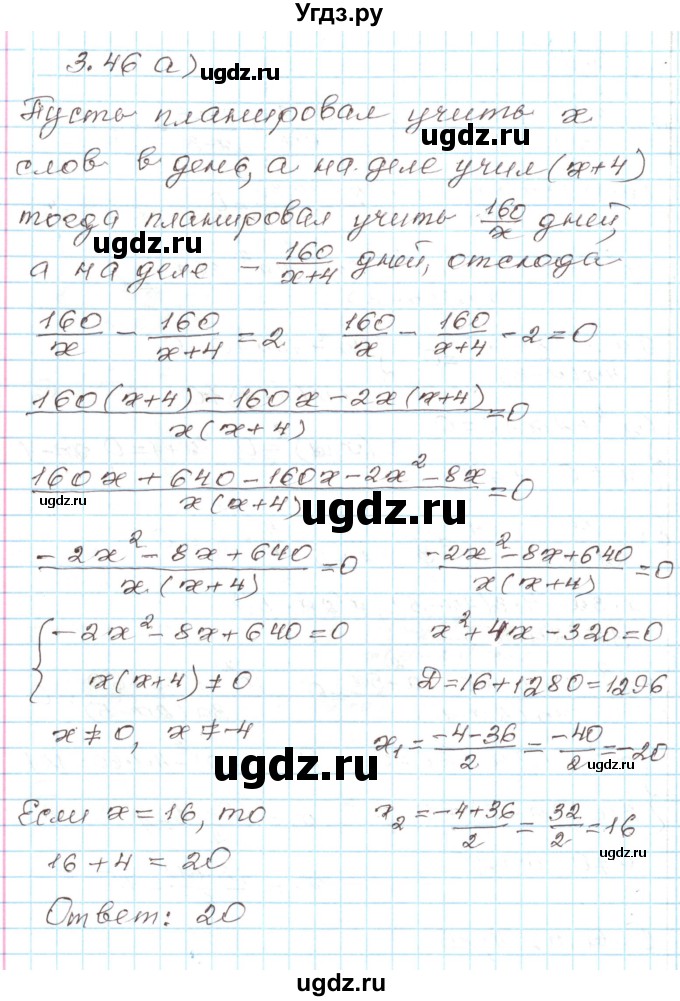 Угдз.ру
3.46 а)
ugdz.ru
Пусть планировал учить x
ugdz.ru
слов в день, а на деле учил (x+4)
тогда планировал учить 160/x дней,
ugdz.ru
а на деле – 160/(x+4) дней, отсюда
160/x − 160/(x+4) = 2    160/x − 160/(x+4) − 2 = 0
(160(x+4) − 160x − 2x(x+4))/(x(x+4)) = 0
(160x + 640 − 160x − 2x² − 8x)/(x(x+4)) = 0
ugdz.ru ugdz.ru
(−2x² − 8x + 640)/(x(x+4)) = 0    (−2x² − 8x + 640)/(x(x+4)) = 0
{ −2x² − 8x + 640 = 0    x² + 4x − 320 = 0
x(x+4) ≠ 0    D = 16 + 1280 = 1296
x ≠ 0, x ≠ −4    x₁ = (−4−36)/2 = −40/2 = −20
ugdz.ru
Если x = 16, то    x₂ = (−4+36)/2 = 32/2 = 16
16 + 4 = 20
ugdz.ru
Ответ: 20
ugdz.ru
ugdz.ru